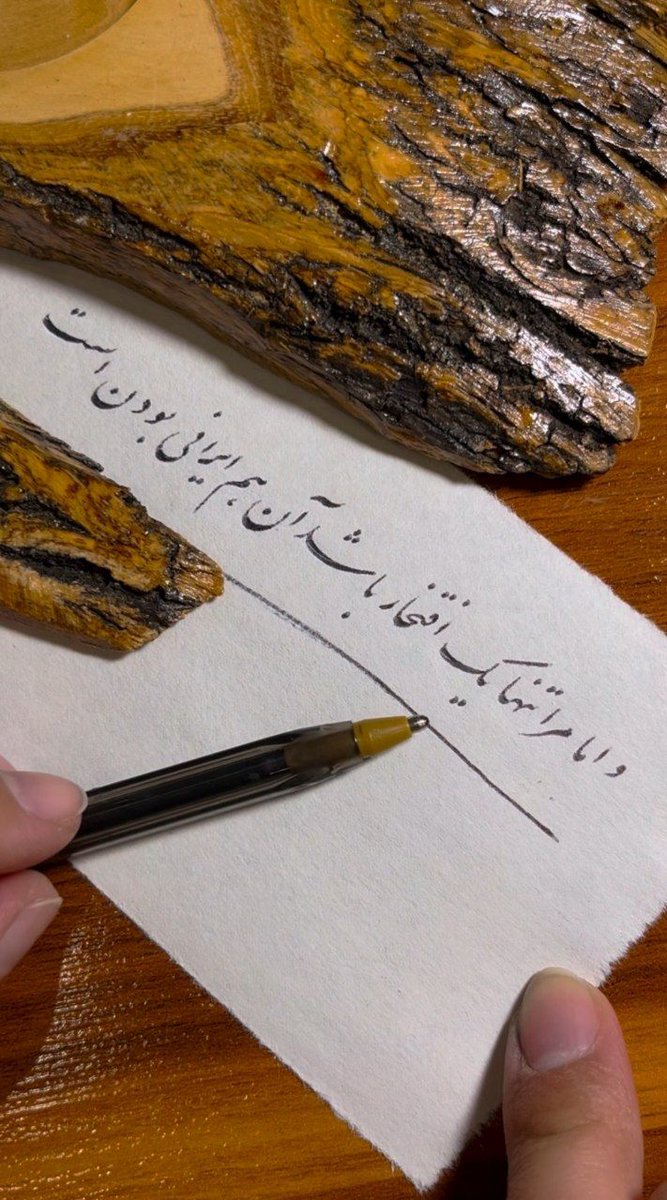 و اما مرا تنها یک افتخار باشد آن هم ایرانی بودن است